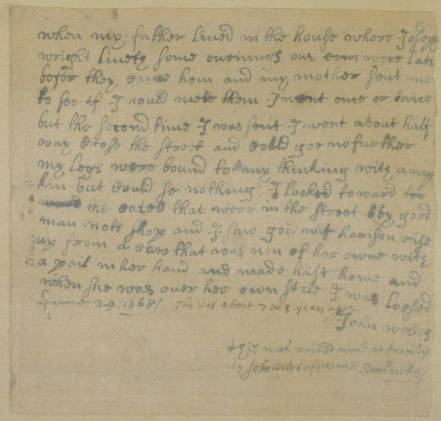 when my father lived in the house where Joseph
wright lives some evenings our cows were late
before they came hom and my mother sent me
to see if I could mete them I went once or twice
but the second time I was sent I went about half
way cross the street and could goe no further
my legs were bound to my thinking with a nap
kin but could se nothing I looked toward
the catell that were in the street by good
man nots shop and I saw good wif harison rise
up from a cow that was non of her owne with
a pail in her hand and made hast home and
when she was over her own stile I was loosed
June 29: 1668/ This was about 7 or 8 years agoe
John wells
by John wells